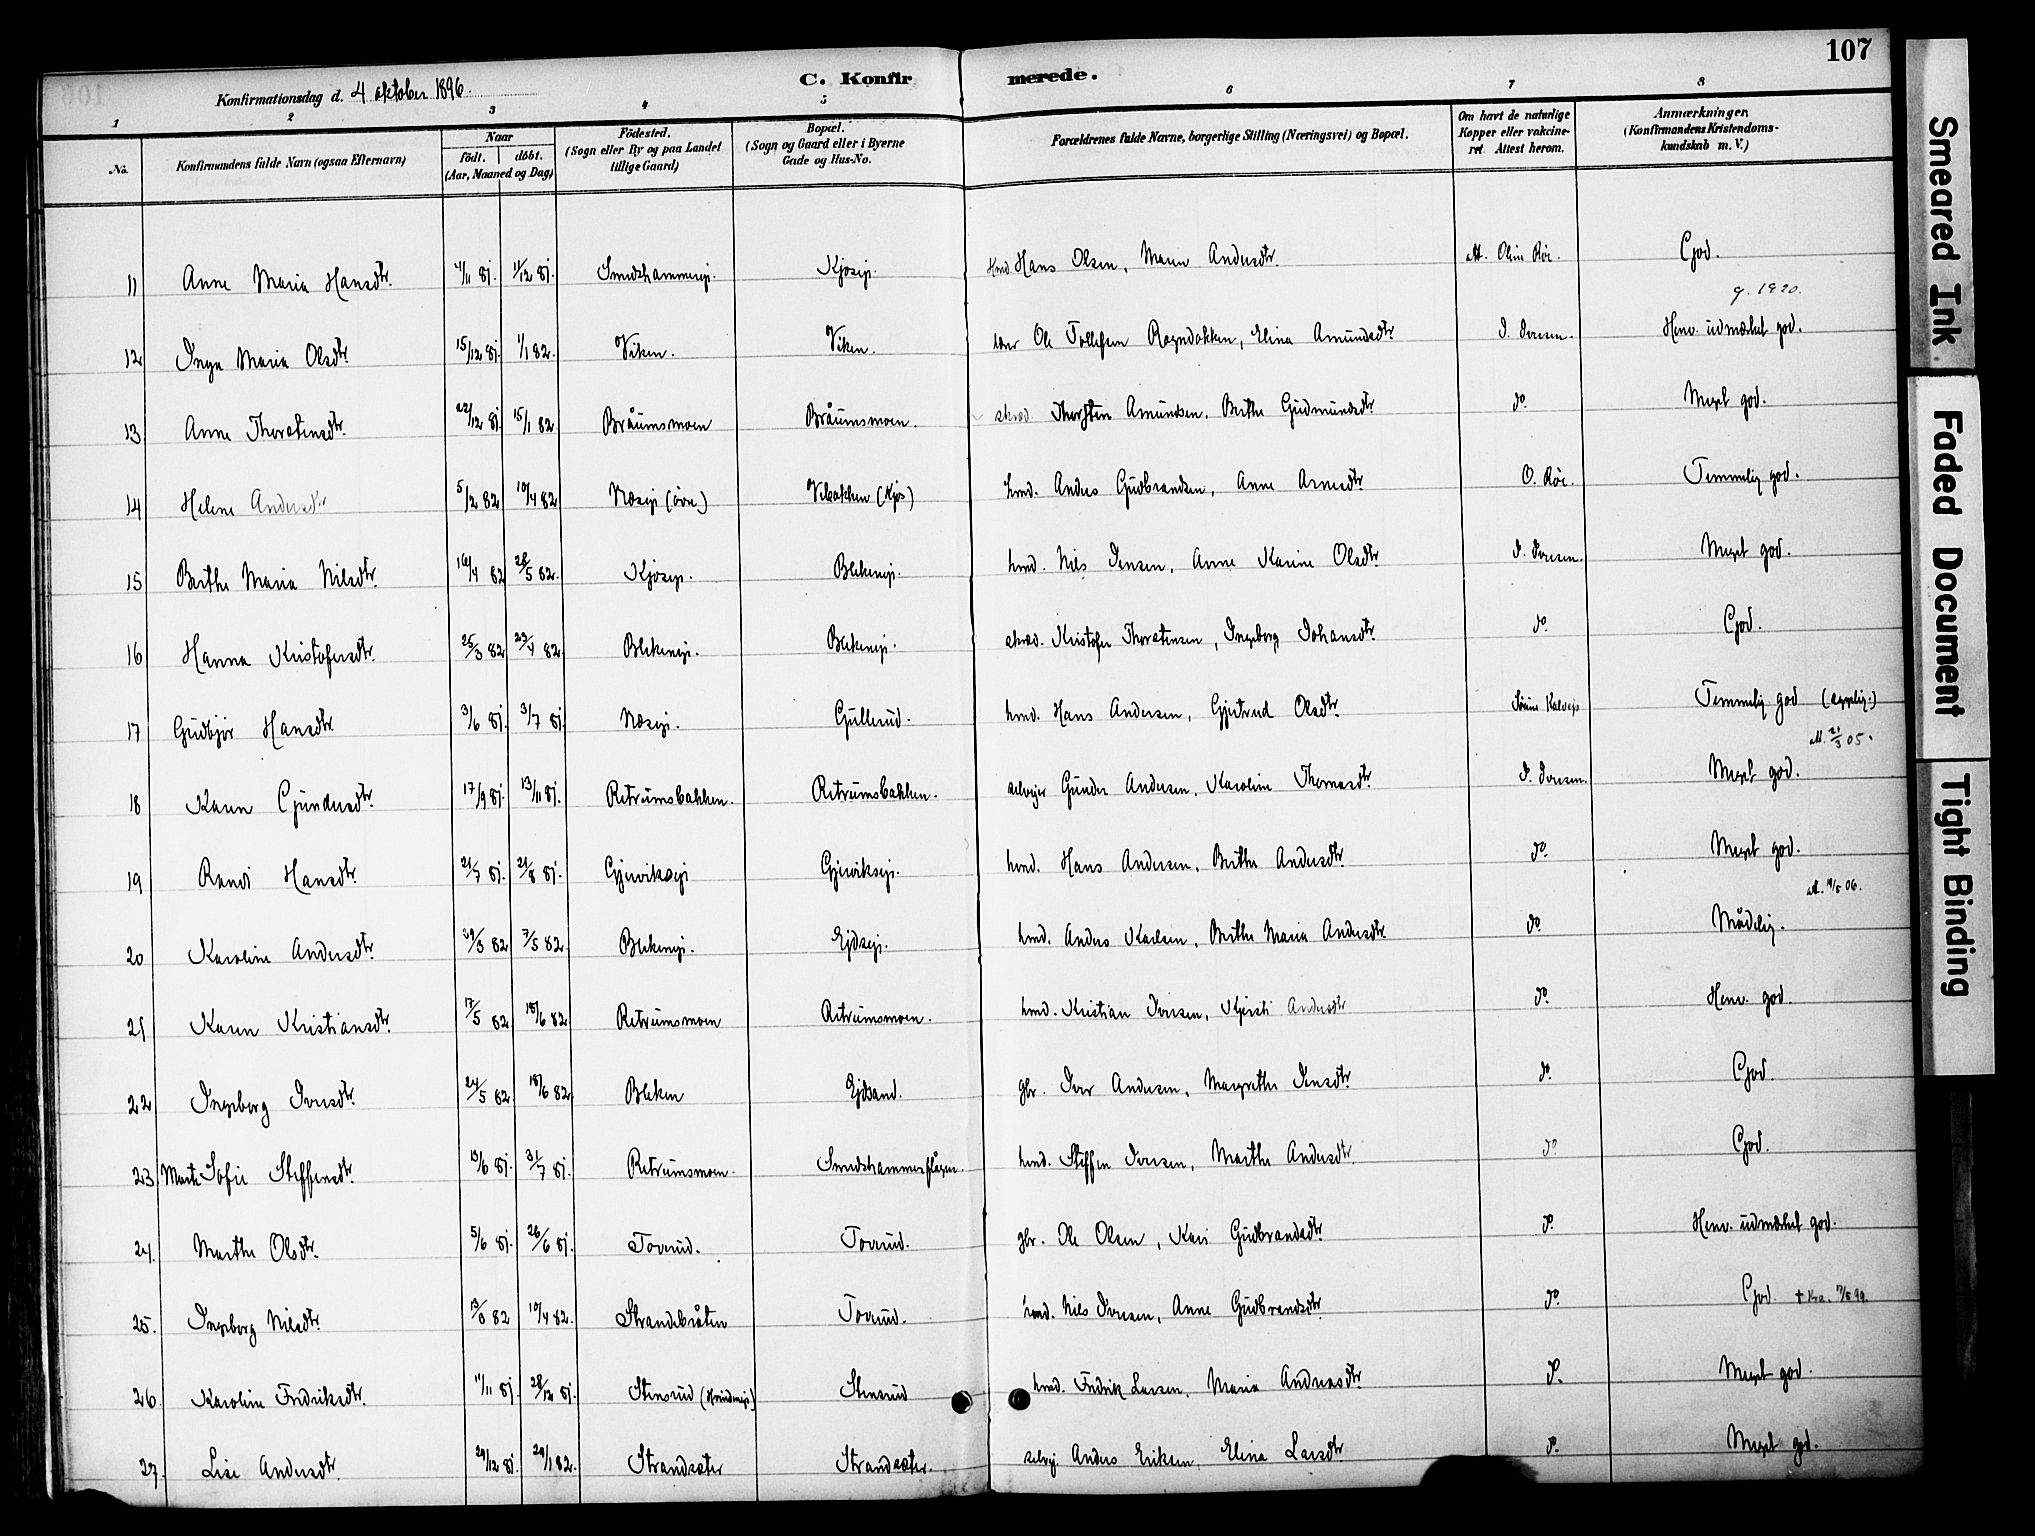 107
C. Konfirmerede.
Konfirmationsdag d. 4 oktober 1896.
1 2 3 4 5 6 7 8
No. Konfirmandens fulde Navn (ogsaa Efternavn) Naar födt. döbt. (Aar, Maaned og Dag) Födested. (Sogn eller By og paa Landet tillige Gaard) Bopæl. (Sogn og Gaard eller i Byerne Gade og Hus-No. Forældrenes fulde Navne, borgerlige Stilling (Næringsvei) og Bopæl. Om havt de naturlige Kopper eller vakcineret. Attest herom. Anmærkninger. (Konfirmandens Kristendomskundskab m. V.)
11 Anne Maria Hansdtr. 4/11 81. 11/12 81. Smedshammerej. Kjosej. Hmd. Hans Olsen, Maren Andersdtr. att. Oline Röe. God.
g. 1920.
12 Inga Maria Olsdtr. 15/12 81. 1/1 82. Viken. Viken. Ole Tollefsen Rogndokken, Elina Amundsdtr I. Iversen. Henv. udmærket god.
13 Anne Thorstensdtr. 22/12 81. 15/1 82 Bråumsmoen Bråumsmoen. skræd. Thorsten Amundsen, Berthe Gudmundsdtr do. Meget god.
14 Helene Andersdtr 5/2 82 10/4 82 Næsej (övre) Vebakken (Kjos) hmd. Anders Gudbrandsen, Anne Arnesdtr O. Röe. Temmelig god.
15 Berthe Maria Nilsdtr. 16/4 82 28/5 82. Kjosej. Blekenej. hmd. Nils Jensen, Anne Karine Olsdtr I. Iversen. Meget god.
16 Hanna Kristofersdtr. 25/3 82 23/4 82 Blekenej. Blekenej. skræd. Kristofer Thorstensen, Ingeborg Johansdtr do. God.
17 Gudbjör Hansdtr. 3/6 81. 3/7 81. Næsej. Gullerud. hmd. Hans Andersen, Gjertrud Olsdtr. Temmelig god
att. 21/3 05.
18 Karen Gundersdtr. 17/9 81. 13/11 81. Retrumsbakken. Retrumsbakken. selvejer Gunder Andersen, Karoline Thomasdtr I. Iversen. Meget god.
19 Randi Hansdtr. 21/7 81. 21/8 81. Gjerviksej Gjerviksej. hmd. Hans Andersen, Berthe Andersdtr do. Meget god.
att. 11/5 06.
20 Karoline Andersdtr. 29/3 82 7/5 82. Blekenej. Ejdsej. hmd. Anders Karlsen, Berthe Maria Andersdtr. do. Mådelig.
21 Karen Kristiansdtr. 17/5 82 18/6 82 Retrumsmoen Retrumsmoen. hmd. Kristian Iversen, Kjersti Andersdtr do. Henv. god.
22 Ingeborg Iversdtr. 24/5 82 18/6 82 Bleken Ejdsand. gbr. Iver Andersen, Margrethe Jensdtr do. God.
23 Marte Sofie Steffensdtr. 13/6 81. 31/7 81. Retrumsmoen. hmd. Steffen Iversen, Marthe Andersdtr. do God.
24. Marthe Olsdtr. 5/6 81. 26/6 81. Toverud. Toverud. gbr. Ole Olsen, Kari Gudbrandsdtr do. Henv. udmærket god.
25. Ingeborg Nilsdtr. 13/3 82 10/4 82. Strandebråten Toverud. hmd. Nils Iversen, Anne Gudbrandsdtr do. God. † Kra. 7/5 99.
26 Karoline Fredriksdtr. 11/11 81. 28/12 81. Stensrud Stensrud hmd. Fredrik Larsen, Maria Andreasdtr do. Meget god.
27. Lise Andersdtr. 29/12 81. 29/1 82. Strandsæter Strandsæter. selvej. Anders Eriksen, Elina Larsdtr do. Meget god.
Smeared Ink
Faded Document
Tight Binding